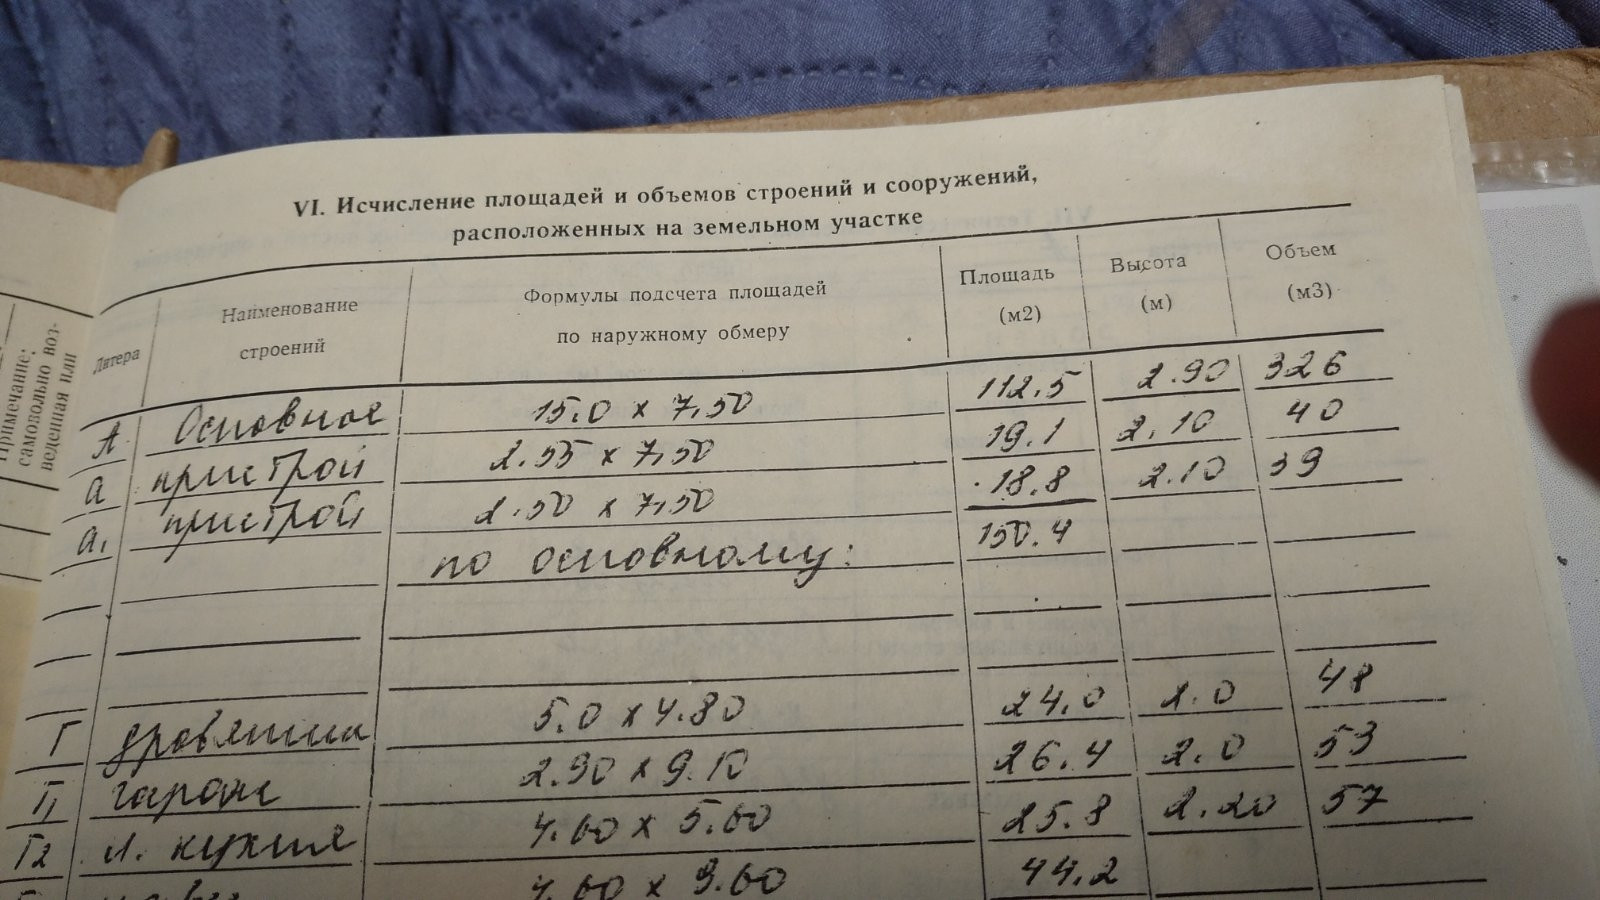 Примечание:
самовольно воз-
веденная или
VI. Исчисление площадей и объемов строений и сооружений,
расположенных на земельном участке
Литера Наименование строений Формулы подсчета площадей по наружному обмеру Площадь (м2) Высота (м) Объем (м3)
А Основное 15.0 x 7,50 112.5 2.90 326
а пристрой 2.55 x 7,50 19.1 2.10 40
а1 пристрой 2.50 x 7,50 18.8 2.10 39
по основному: 150.4
Г дровяник 5.0 x 4.80 24.0 2.0 48
Г1 гараж 2.90 x 9.10 26.4 2.0 53
Г2 л. кухня 4.60 x 5.60 25.8 2.20 57
4.60 x 9.60 44.2